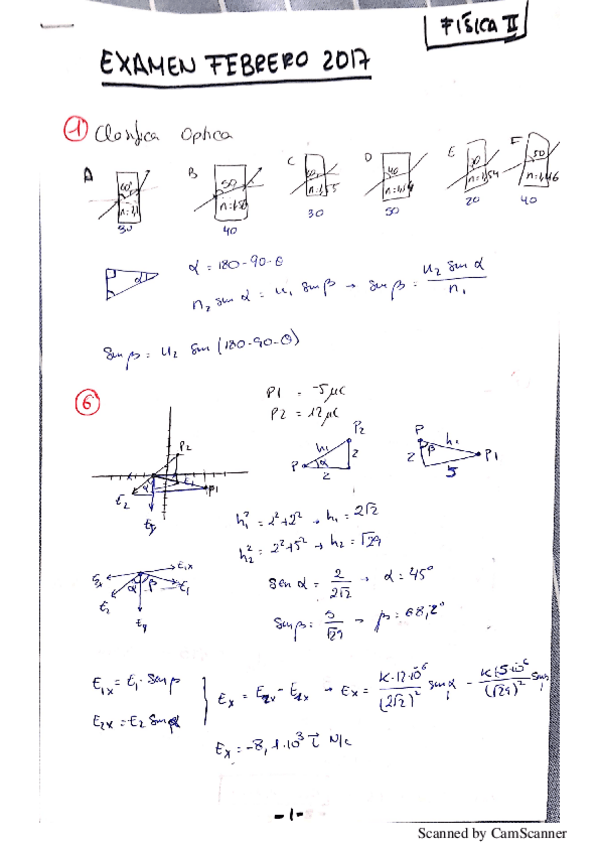 FÍSICA II
EXAMEN FEBRERO 2017
① Clasifica Optica
A B C D E F
50 40 50 30 50
n=1,54 n=1,46
30 40 30 50 20 40
α
α = 180-90-θ
n₂ sen α = n₁ sen β → sen β = n₂ sen α / n₁
sen β = n₂ sen (180-90-θ)
⑥
P1 = -5 μC
P2 = 12 μC
P2 P1 E₂ Ey α
P h₁ α P2 2 2
P h₁ β 2 5 P1
h₁² = 2²+2² → h₁ = 2√2
h₂² = 2²+5² → h₂ = √29
E₁x E₁ α β E₂ Ey
sen α = 2/2√2 → α = 45°
sen β = 5/√29 → β = 68,2°
E₁x = E₁ · sen β
E₂x = E₂ sen α
Ex = E₂x - E₁x → Ex = K·12·10⁻⁶/(2√2)² sen α - K·5·10⁻⁶/(√29)²
Ex = -8,1·10³ i N/c
-1-
Scanned by CamScanner